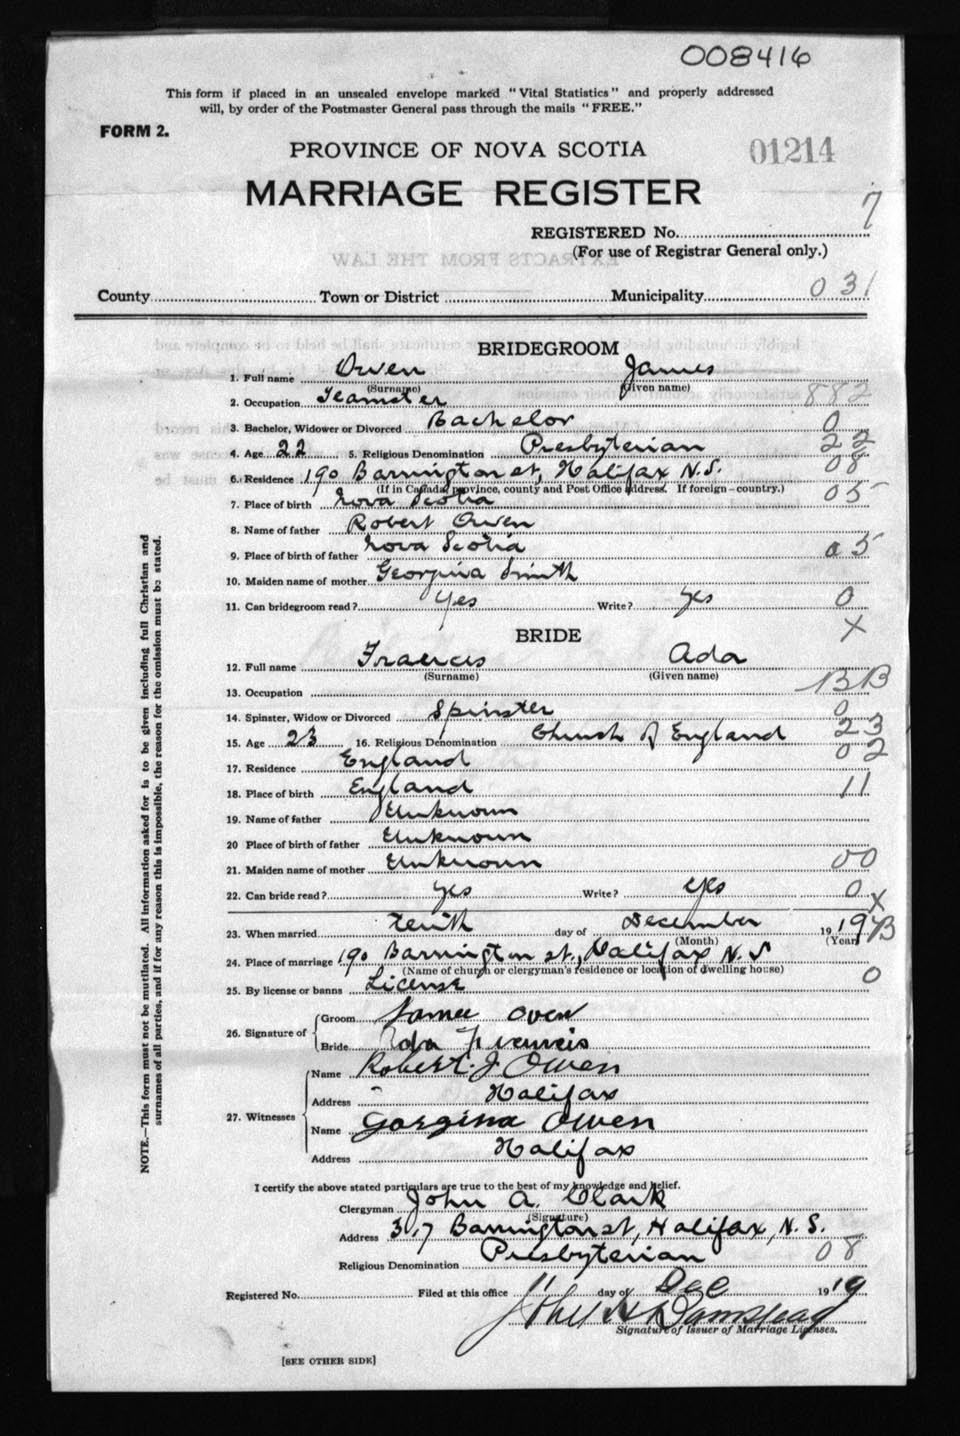 008416
This form if placed in an unsealed envelope marked "Vital Statistics" and properly addressed
will, by order of the Postmaster General pass through the mails "FREE."
FORM 2.
PROVINCE OF NOVA SCOTIA
01214
MARRIAGE REGISTER
REGISTERED No. 7
(For use of Registrar General only.)
EXTRACTS FROM THE LAW
County Town or District Municipality 031
BRIDEGROOM
1. Full name Owen James
(Surname) (Given name)
2. Occupation Teamster 882
3. Bachelor, Widower or Divorced Bachelor 0
4. Age 22 5. Religious Denomination Presbyterian 22
6. Residence 190 Barrington st, Halifax N.S. 08
(If in Canada, province, county and Post Office address. If foreign—country.)
7. Place of birth Nova Scotia 05
8. Name of father Robert Owen
9. Place of birth of father Nova Scotia 05
10. Maiden name of mother Georgina Smith
11. Can bridegroom read? Yes Write? Yes 0
X
BRIDE
12. Full name Francis Ada
(Surname) (Given name)
13. Occupation BB
14. Spinster, Widow or Divorced Spinster 0
15. Age 23 16. Religious Denomination Church of England 23
17. Residence England 02
18. Place of birth England 11
19. Name of father Unknown
20 Place of birth of father Unknown
21. Maiden name of mother Unknown 00
22. Can bride read? Yes Write? Yes 0
X
23. When married Tenth day of December 1919
(Month) (Year)
24. Place of marriage 190 Barrington st., Halifax N.S
(Name of church or clergyman's residence or location of dwelling house)
25. By license or banns License 0
26. Signature of Groom James Owen
Bride Ada Francis
27. Witnesses Name Robert. J. Owen
Address Halifax
Name Gorgina Owen
Address Halifax
I certify the above stated particulars are true to the best of my knowledge and belief.
Clergyman John A. Clark
(Signature)
Address 317 Barrington st, Halifax, N.S.
Religious Denomination Presbyterian 08
Registered No. Filed at this office 11 day of Dec 1919
Signature of Issuer of Marriage Licenses.
[SEE OTHER SIDE]
NOTE.—This form must not be mutilated. All information asked for is to be given including full Christian and
surnames of all parties, and if for any reason this is impossible, the reason for the omission must be stated.